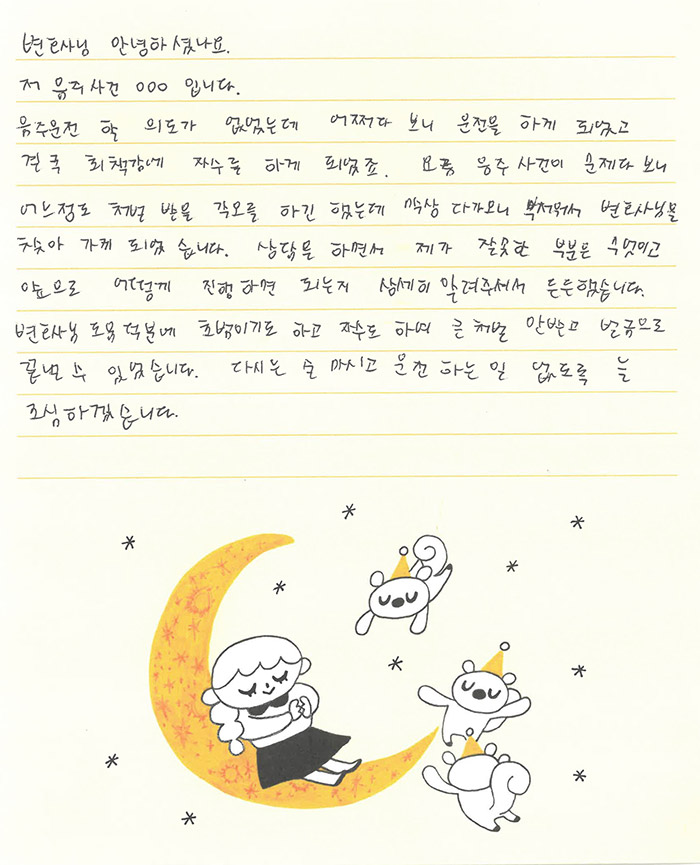 변호사님 안녕하셨나요.
저 음주사건 000 입니다.
음주운전 할 의도가 없었는데 어쩌다 보니 운전을 하게 되었고
결국 죄책감에 자수를 하게 되었죠. 요즘 음주 사건이 문제다 보니
어느정도 처벌 받을 각오를 하긴 했는데 막상 다가오니 무서워서 변호사님을
찾아 가게 되었습니다. 상담을 하면서 제가 잘못한 부분은 무엇이고
앞으로 어떻게 진행하면 되는지 상세히 알려주셔서 든든했습니다.
변호사님 도움 덕분에 초범이기도 하고 자수도 하여 큰 처벌 안받고 벌금으로
끝낼 수 있었습니다. 다시는 술 마시고 운전 하는 일 없도록 늘
조심하겠습니다.